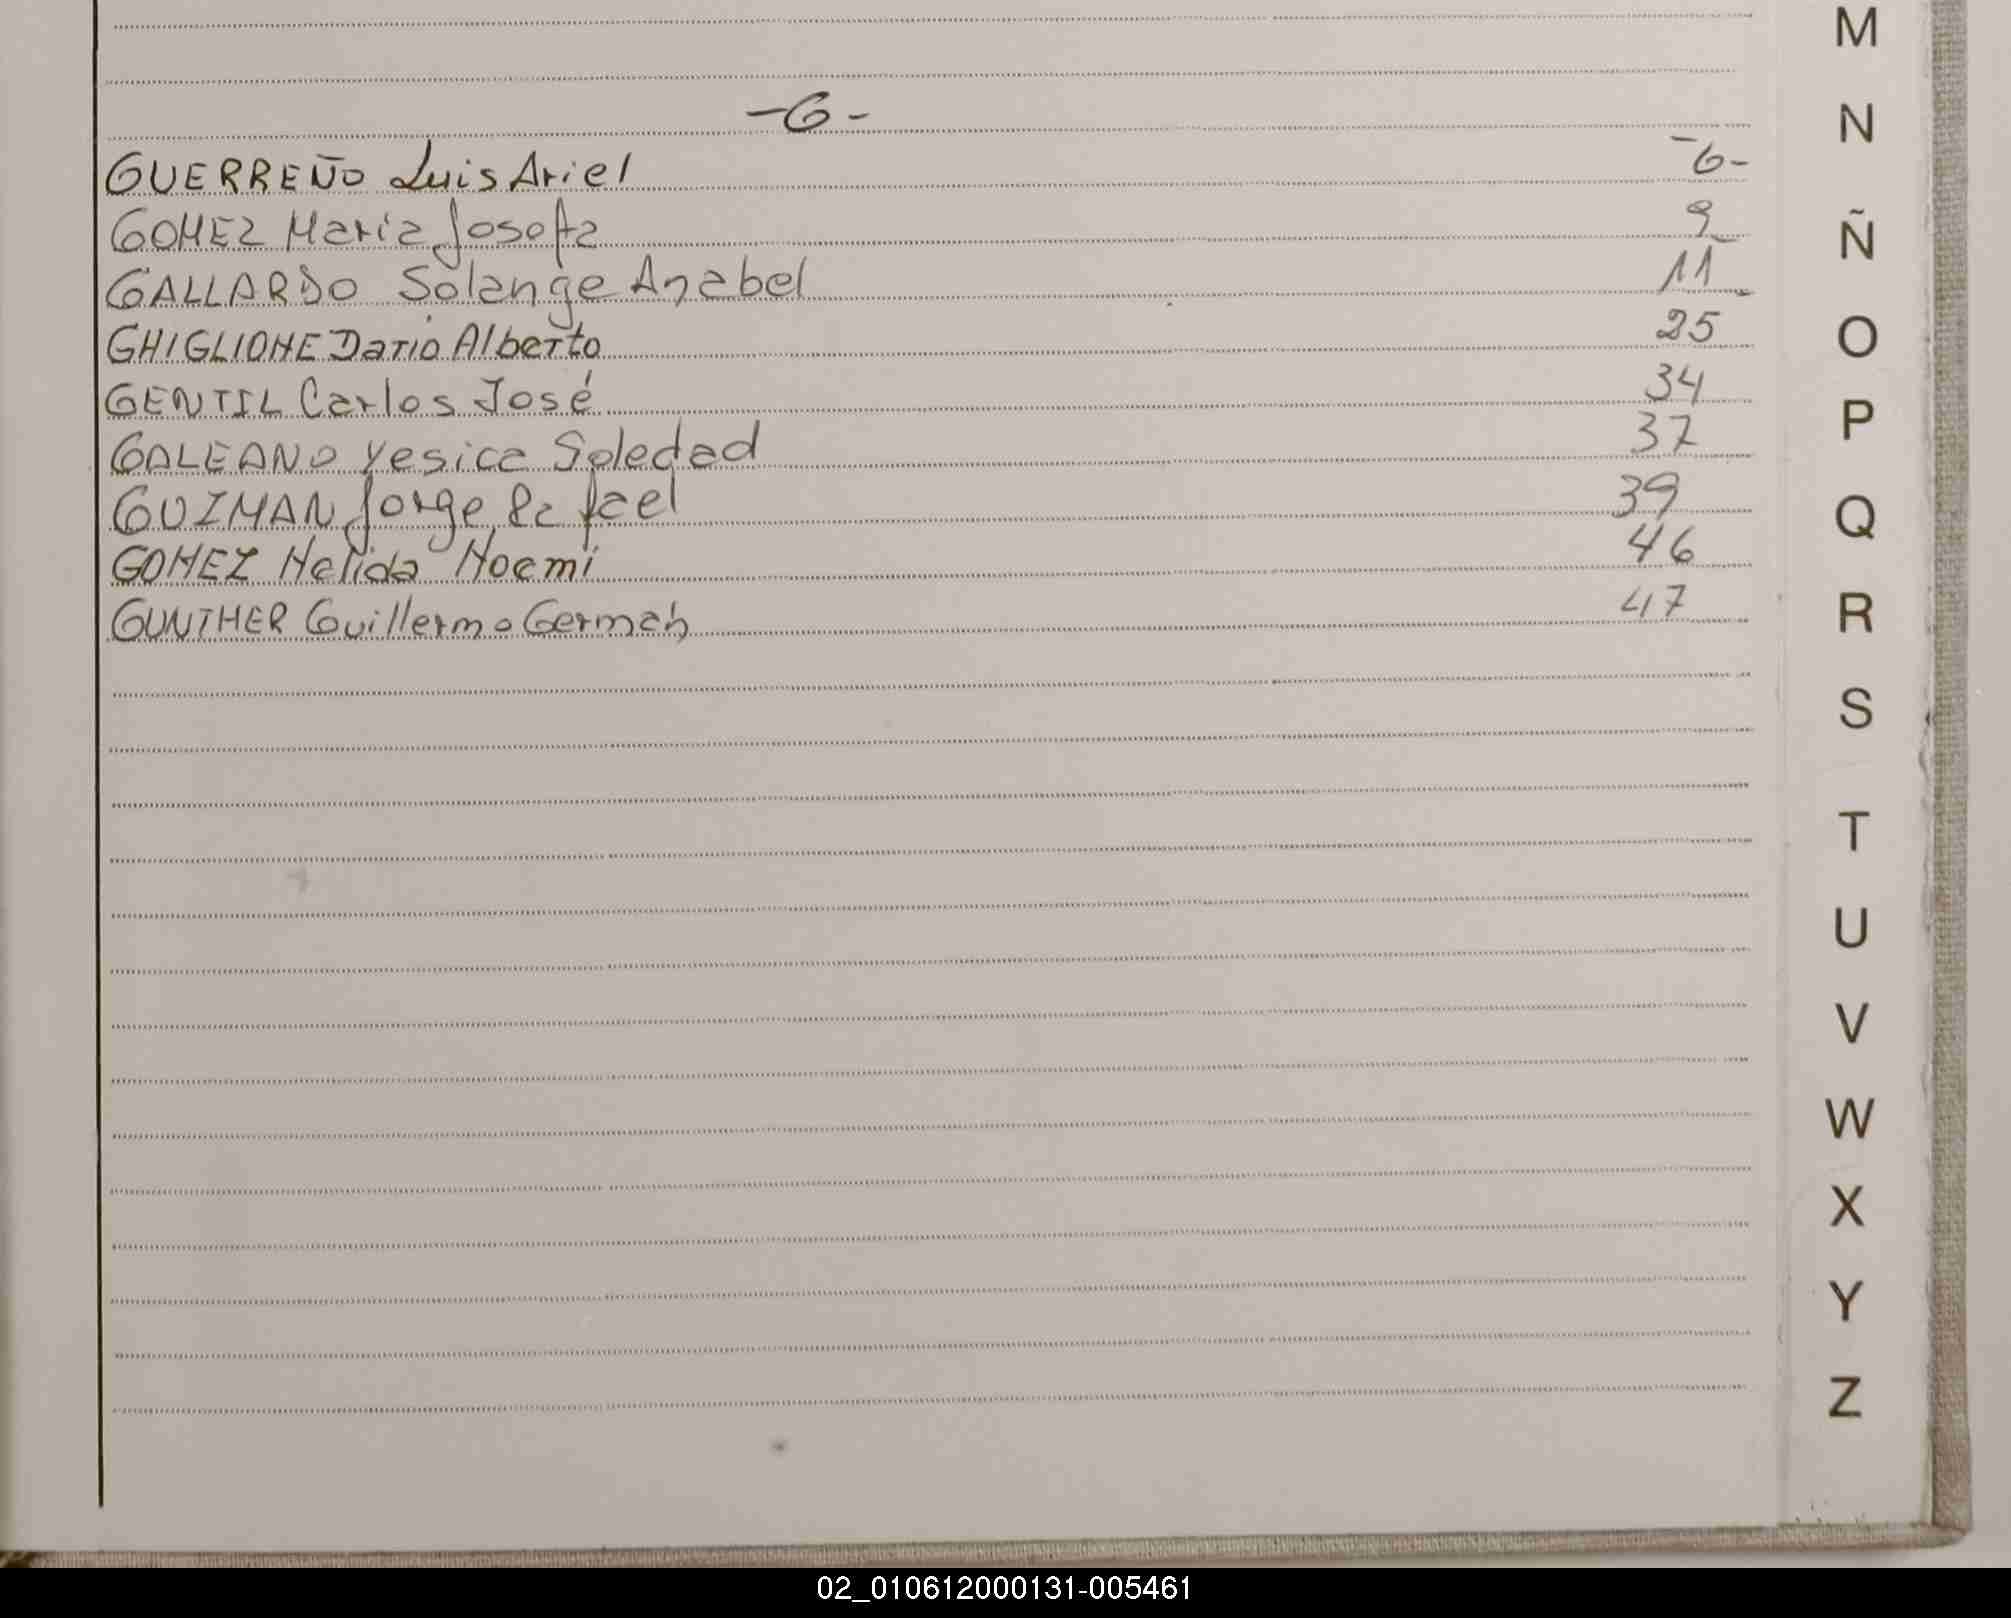 -G-
GUERREÑO Luis Ariel -6-
GOMEZ Maria Josefa 9
GALLARDO Solange Anabel 11
GHIGLIONE Dario Alberto 25
GENTIL Carlos José 34
GALEANO Yesica Soledad 37
GUZMAN Jorge Rafael 39
GOMEZ Nelida Noemí 46
GUNTHER Guillermo Germán 47
M
N
Ñ
O
P
Q
R
S
T
U
V
W
X
Y
Z
02_010612000131-005461